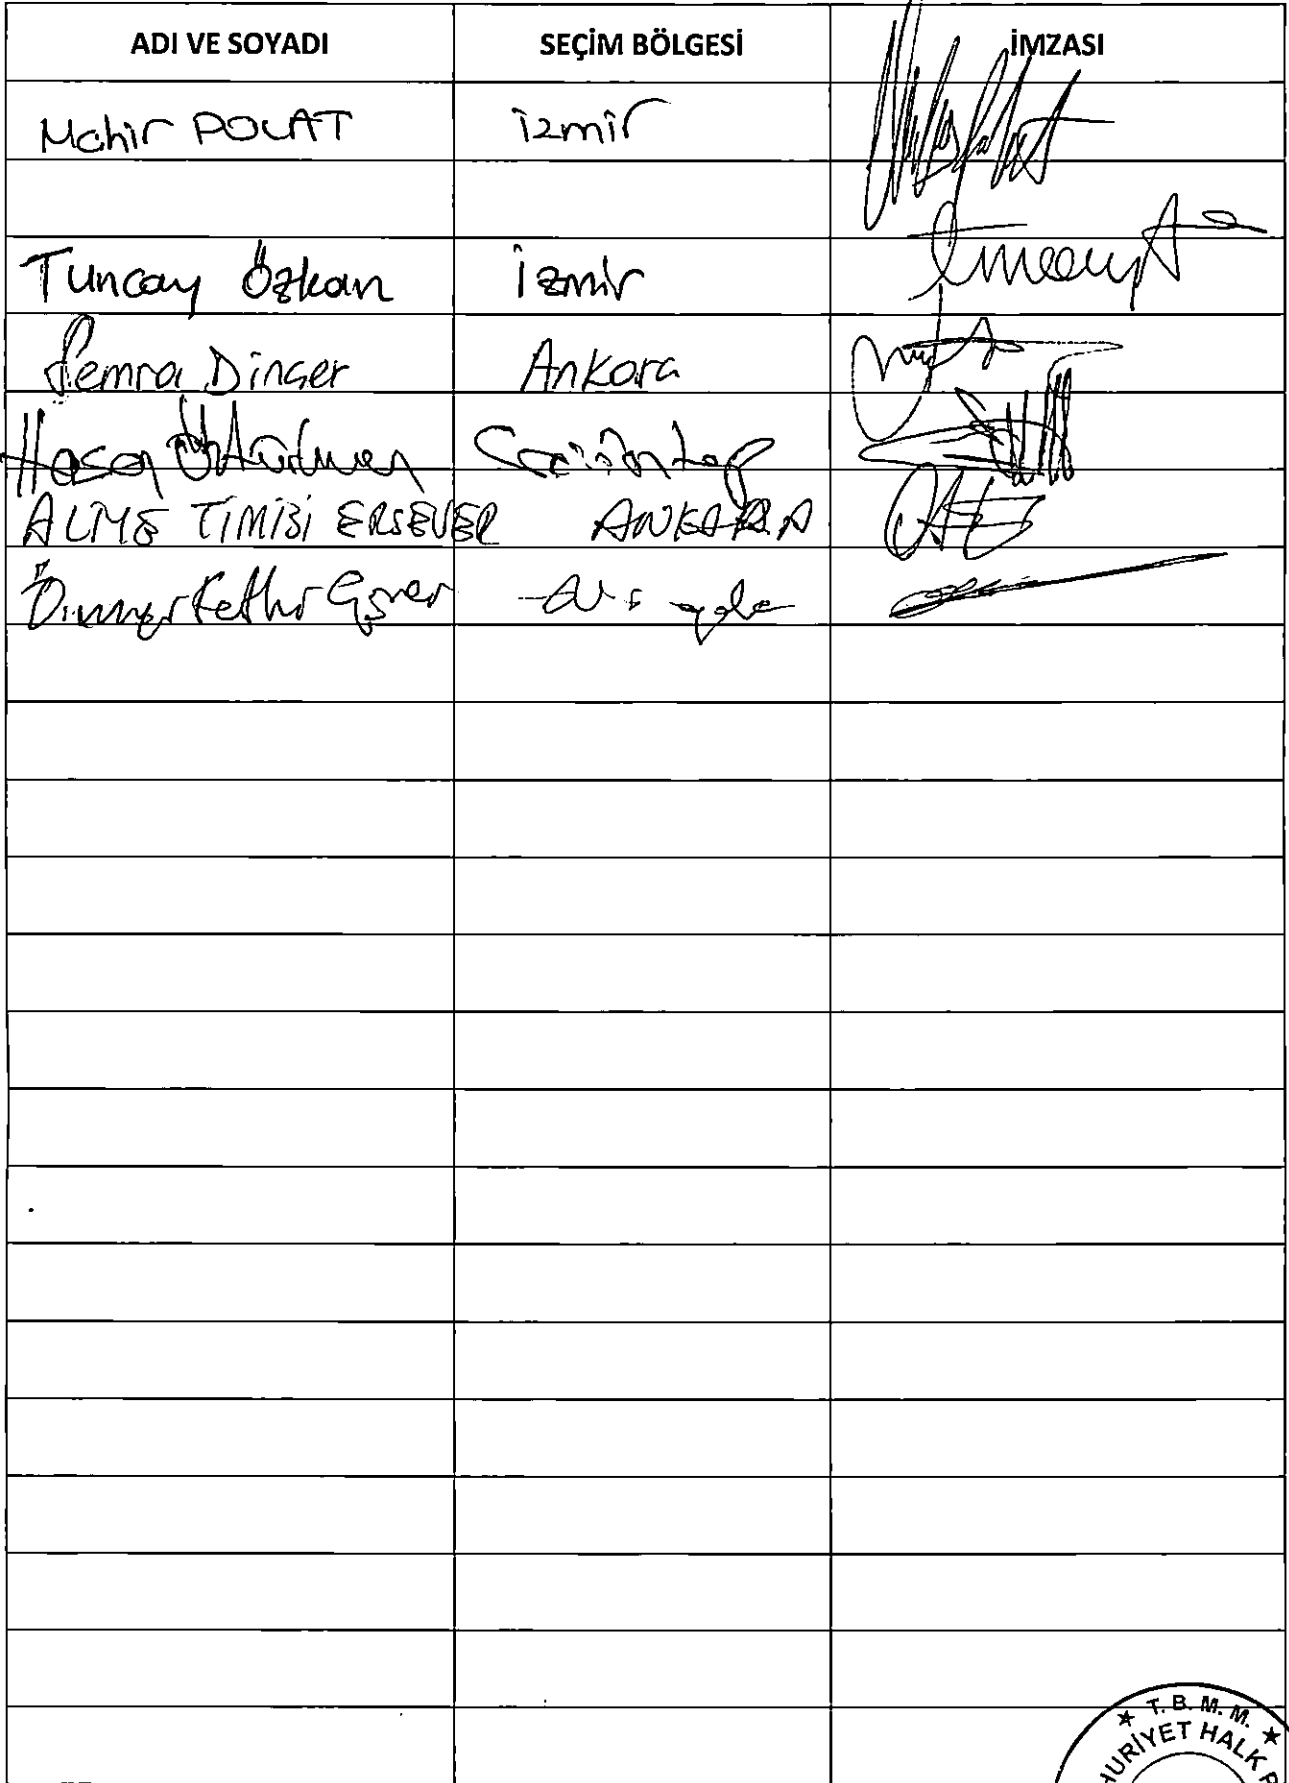 ADI VE SOYADI SEÇİM BÖLGESİ İMZASI
Mahir POLAT İzmir
Tuncay Özkan İzmir
Semra Dinçer Ankara
Hasan Öztürkmen Gaziantep
ALİYE TİMİSİ ERSEVER ANKARA
Ömer Fethi Gürer
★ T. B. M. M. ★
HURİYET HALK P